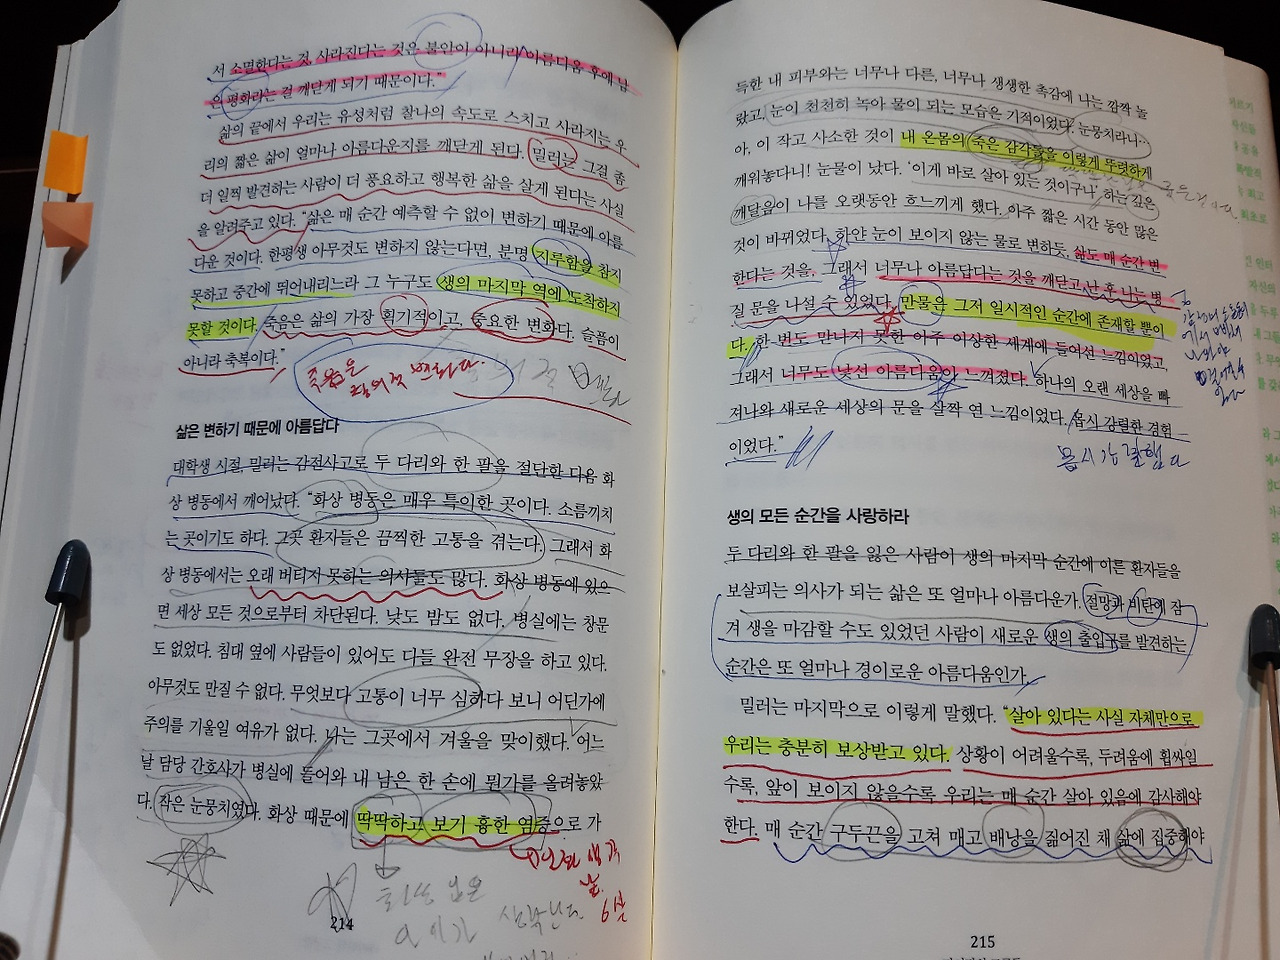 서 소멸한다는 것, 사라진다는 것은 불안이 아니라 아름다움 후에 남
은 평화라는 걸 깨닫게 되기 때문이다.”
삶의 끝에서 우리는 유성처럼 찰나의 속도로 스치고 사라지는 우
리의 짧은 삶이 얼마나 아름다운지를 깨닫게 된다. 밀러는 그걸 좀
더 일찍 발견하는 사람이 더 풍요하고 행복한 삶을 살게 된다는 사실
을 알려주고 있다. “삶은 매 순간 예측할 수 없이 변하기 때문에 아름
다운 것이다. 한평생 아무것도 변하지 않는다면, 분명 지루함을 참지
못하고 중간에 뛰어내리느라 그 누구도 생의 마지막 역에 도착하지
못할 것이다. 죽음은 삶의 가장 획기적이고, 중요한 변화다. 슬픔이
아니라 축복이다.”
죽음은
변화다.
삶은 변하기 때문에 아름답다
대학생 시절, 밀러는 감전사고로 두 다리와 한 팔을 절단한 다음 화
상 병동에서 깨어났다. “화상 병동은 매우 특이한 곳이다. 소름끼치
는 곳이기도 하다. 그곳 환자들은 끔찍한 고통을 겪는다. 그래서 화
상 병동에서는 오래 버티지 못하는 의사들도 많다. 화상 병동에 있으
면 세상 모든 것으로부터 차단된다. 낮도 밤도 없다. 병실에는 창문
도 없었다. 침대 옆에 사람들이 있어도 다들 완전 무장을 하고 있다.
아무것도 만질 수 없다. 무엇보다 고통이 너무 심하다 보니 어딘가에
주의를 기울일 여유가 없다. 나는 그곳에서 겨울을 맞이했다. 어느
날 담당 간호사가 병실에 들어와 내 남은 한 손에 뭔가를 올려놓았
다. 작은 눈뭉치였다. 화상 때문에 딱딱하고 보기 흉한 염증으로 가
214
득한 내 피부와는 너무나 다른, 너무나 생생한 촉감에 나는 깜짝 놀
랐고, 눈이 천천히 녹아 물이 되는 모습은 기적이었다. 눈뭉치라니…
아, 이 작고 사소한 것이 내 온몸의 죽은 감각들을 이렇게 뚜렷하게
깨워놓다니! 눈물이 났다. ‘이게 바로 살아 있는 것이구나’ 하는 깊은
깨달음이 나를 오랫동안 흐느끼게 했다. 아주 짧은 시간 동안 많은
것이 바뀌었다. 하얀 눈이 보이지 않는 물로 변하듯, 삶도 매 순간 변
한다는 것을. 그래서 너무나 아름답다는 것을 깨닫고 난 후 나는 병
실 문을 나설 수 있었다. 만물은 그저 일시적인 순간에 존재할 뿐이
다. 한 번도 만나지 못한 아주 이상한 세계에 들어선 느낌이었고,
그래서 너무도 낯선 아름다움이 느껴졌다. 하나의 오랜 세상을 빠
져나와 새로운 세상의 문을 살짝 연 느낌이었다. 몹시 강렬한 경험
이었다.”
생의 모든 순간을 사랑하라
두 다리와 한 팔을 잃은 사람이 생의 마지막 순간에 이른 환자들을
보살피는 의사가 되는 삶은 또 얼마나 아름다운가. 절망과 비탄에 잠
겨 생을 마감할 수도 있었던 사람이 새로운 생의 출입구를 발견하는
순간은 또 얼마나 경이로운 아름다움인가.
밀러는 마지막으로 이렇게 말했다. “살아 있다는 사실 자체만으로
우리는 충분히 보상받고 있다. 상황이 어려울수록, 두려움에 휩싸일
수록, 앞이 보이지 않을수록 우리는 매 순간 살아 있음에 감사해야
한다. 매 순간 구두끈을 고쳐 매고 배낭을 짊어진 채 삶에 집중해야
215